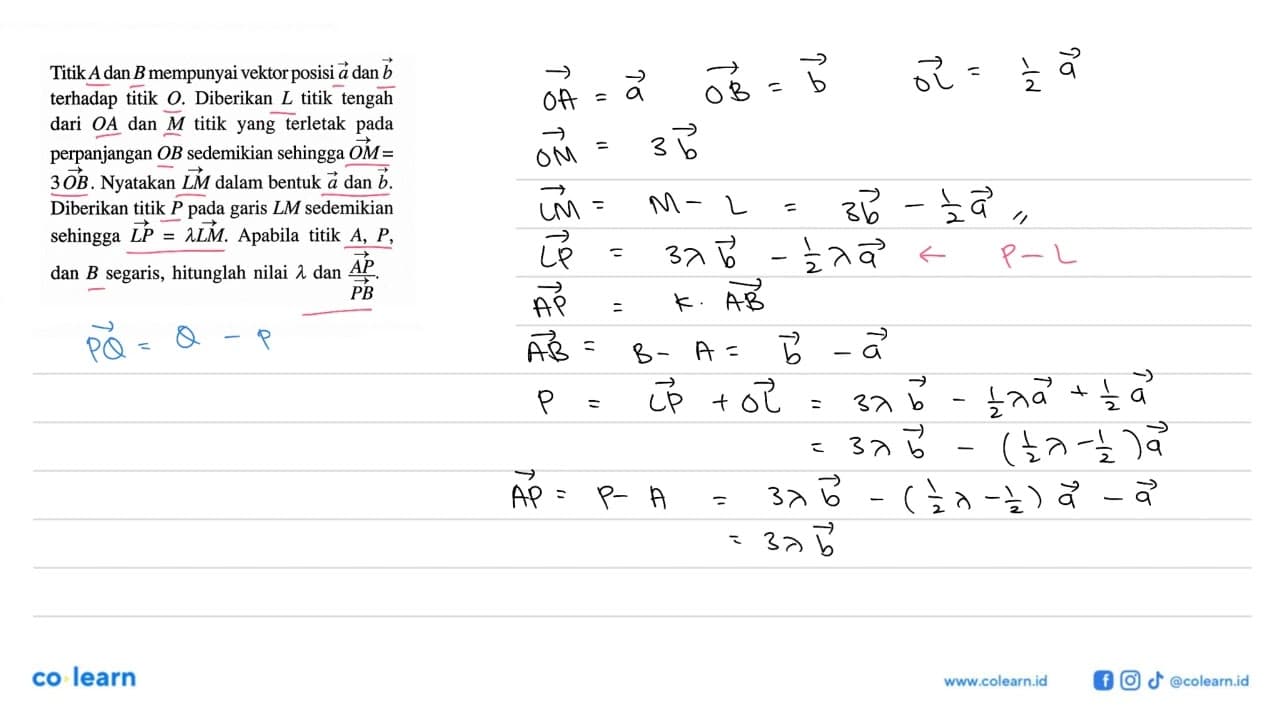 Titik A dan B mempunyai vektor posisi \vec{a} dan \vec{b}
terhadap titik O. Diberikan L titik tengah
dari OA dan M titik yang terletak pada
perpanjangan OB sedemikian sehingga \vec{OM} =
3\vec{OB}. Nyatakan \vec{LM} dalam bentuk \vec{a} dan \vec{b}.
Diberikan titik P pada garis LM sedemikian
sehingga \vec{LP} = λ\vec{LM}. Apabila titik A, P,
dan B segaris, hitunglah nilai λ dan \frac{\vec{AP}}{\vec{PB}}.
\vec{PQ} = Q - P
\vec{OA} = \vec{a} \vec{OB} = \vec{b} \vec{OL} = \frac{1}{2} \vec{a}
\vec{OM} = 3\vec{b}
\vec{LM} = M - L = 3\vec{b} - \frac{1}{2}\vec{a} //
\vec{LP} = 3λ\vec{b} - \frac{1}{2}λ\vec{a} ← P - L
\vec{AP} = k. \vec{AB}
\vec{AB} = B - A = \vec{b} - \vec{a}
P = \vec{LP} + \vec{OL} = 3λ\vec{b} - \frac{1}{2}λ\vec{a} + \frac{1}{2}\vec{a}
= 3λ\vec{b} - (\frac{1}{2}λ - \frac{1}{2})\vec{a}
\vec{AP} = P - A = 3λ\vec{b} - (\frac{1}{2}λ - \frac{1}{2})\vec{a} - \vec{a}
= 3λ\vec{b}
co learn
www.colearn.id
@colearn.id